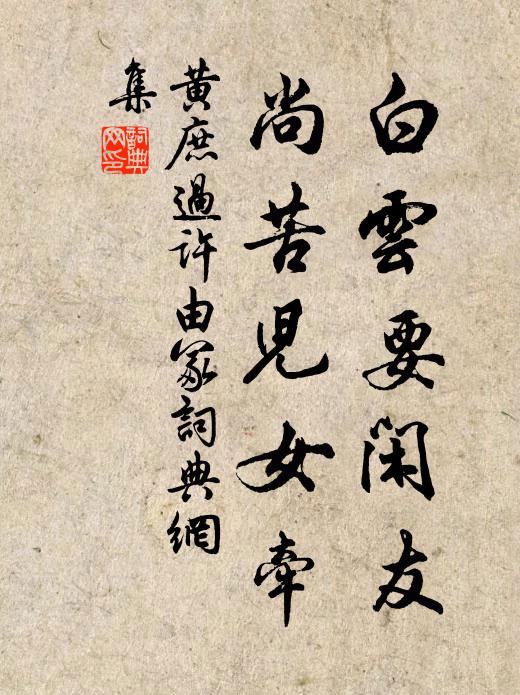 白雲要閑友
尚苦兒女牽
黃庶過許由冢詞典網
集
詞典網印